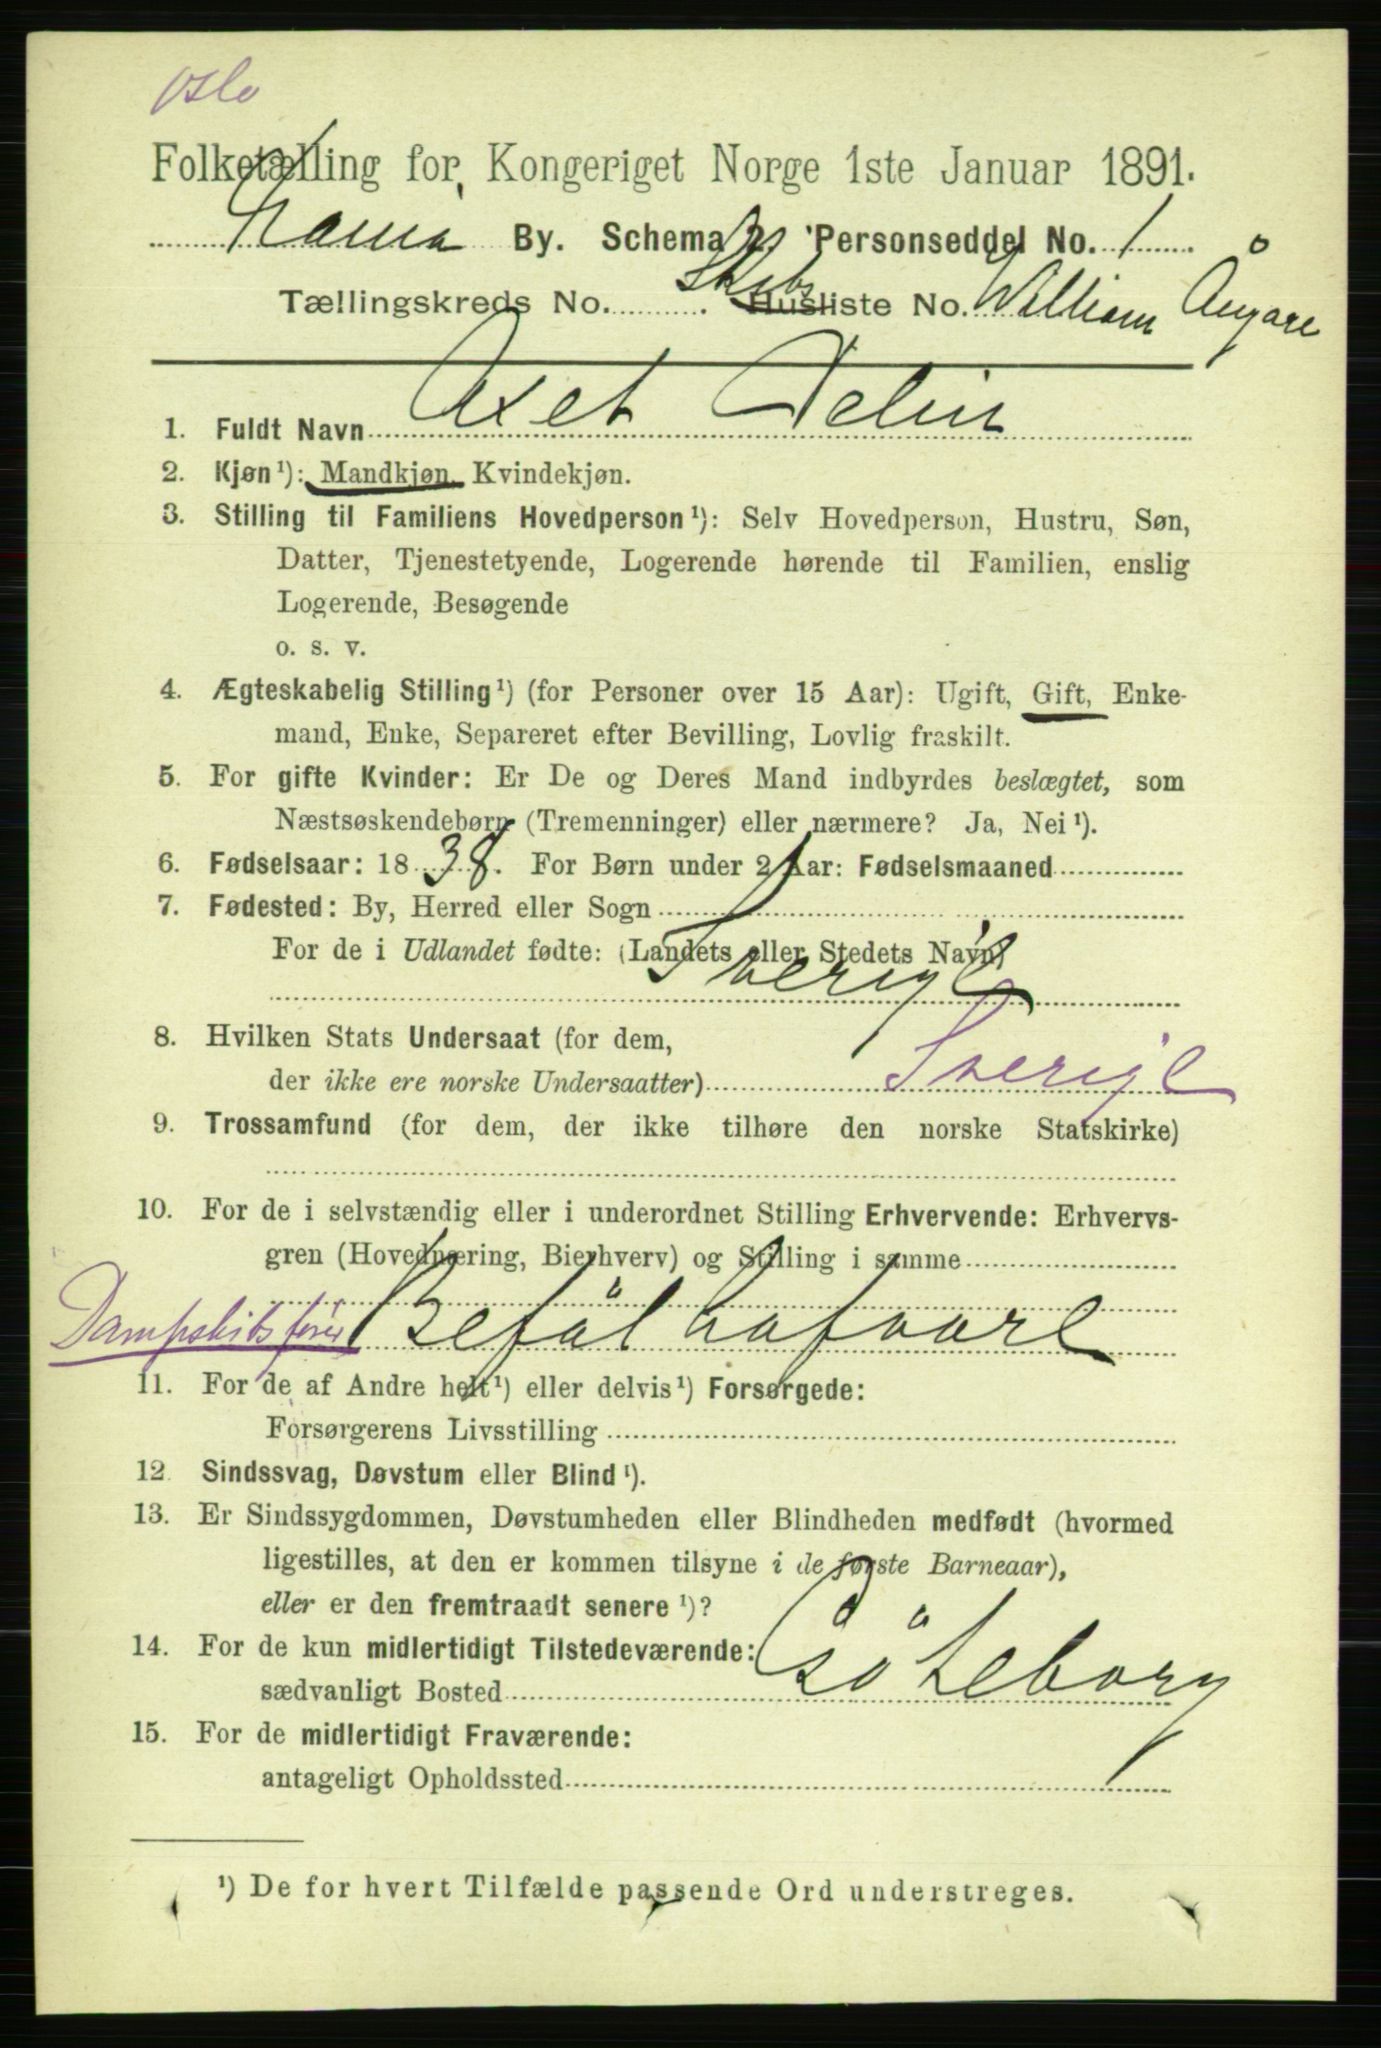 Oslo
Folketælling for Kongeriget Norge 1ste Januar 1891.
By. Schema 2. Personseddel No. 1
Tællingskreds No. Skibsliste No. William Ångare
1. Fuldt Navn Axel Delin
2. Kjøn ¹): Mandkjøn, Kvindekjøn.
3. Stilling til Familiens Hovedperson ¹): Selv Hovedperson, Hustru, Søn,
Datter, Tjenestetyende, Logerende hørende til Familien, enslig
Logerende, Besøgende
o. s. v.
4. Ægteskabelig Stilling ¹) (for Personer over 15 Aar): Ugift, Gift, Enke-
mand, Enke, Separeret efter Bevilling, Lovlig fraskilt.
5. For gifte Kvinder: Er De og Deres Mand indbyrdes beslægtet, som
Næstsøskendebørn (Tremenninger) eller nærmere? Ja, Nei ¹).
6. Fødselsaar: 1838. For Børn under 2 Aar: Fødselsmaaned
7. Fødested: By, Herred eller Sogn
For de i Udlandet fødte: (Landets eller Stedets Navn)
Sverige
8. Hvilken Stats Undersaat (for dem,
der ikke ere norske Undersaatter) Sverige
9. Trossamfund (for dem, der ikke tilhøre den norske Statskirke)
10. For de i selvstændig eller i underordnet Stilling Erhvervende: Erhvervs-
gren (Hovednæring, Bierhverv) og Stilling i samme
Dampskibsfører Befälhafvare
11. For de af Andre helt ¹) eller delvis ¹) Forsørgede:
Forsørgerens Livsstilling
12. Sindssvag, Døvstum eller Blind ¹).
13. Er Sindssygdommen, Døvstumheden eller Blindheden medfødt (hvormed
ligestilles, at den er kommen tilsyne i de første Barneaar),
eller er den fremtraadt senere ¹)?
14. For de kun midlertidigt Tilstedeværende:
sædvanligt Bosted Göteborg
15. For de midlertidigt Fraværende:
antageligt Opholdssted
¹) De for hvert Tilfælde passende Ord understreges.